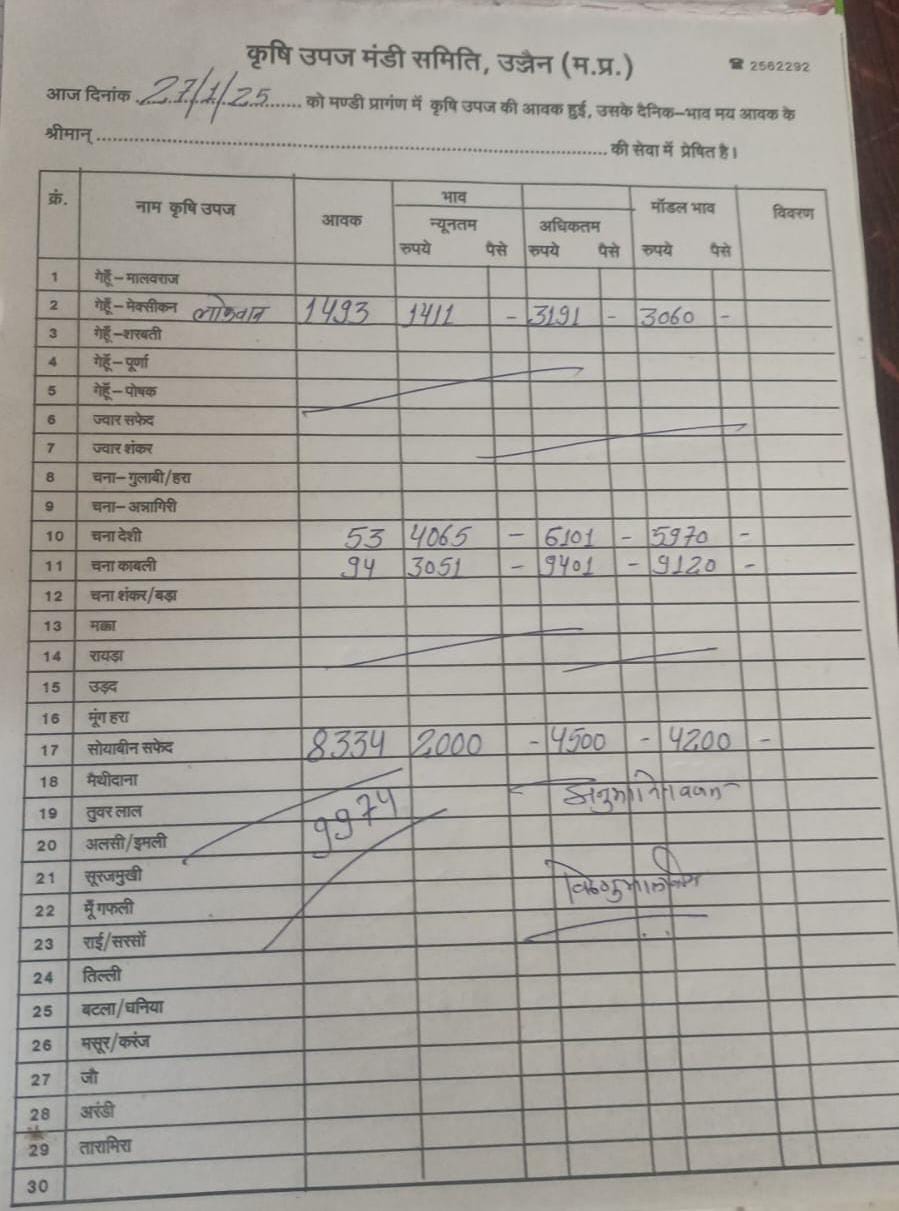 कृषि उपज मंडी समिति, उज्जैन (म.प्र.) ☎ 2562292
आज दिनांक 27/1/25 को मण्डी प्रागंण में कृषि उपज की आवक हुई, उसके दैनिक–भाव मय आवक के
श्रीमान् की सेवा में प्रेषित है।
क्रं. नाम कृषि उपज आवक भाव मॉडल भाव विवरण
न्यूनतम अधिकतम
रुपये पैसे रुपये पैसे रुपये पैसे
1 गेहूँ–मालवराज
2 गेहूँ–मेक्सीकन लोकवान 1493 1411 - 3191 - 3060 -
3 गेहूँ–शरबती
4 गेहूँ–पूर्णा
5 गेहूँ–पोषक
6 ज्वार सफेद
7 ज्वार शंकर
8 चना–गुलाबी/हरा
9 चना–अन्नागिरी
10 चना देशी 53 4065 - 6101 - 5970 -
11 चना काबली 94 3051 - 9401 - 9120 -
12 चना शंकर/बड़ा
13 मक्का
14 रायड़ा
15 उड़द
16 मूंग हरा
17 सोयाबीन सफेद 8334 2000 - 4500 - 4200 -
18 मैथीदाना
19 तुवर लाल 9974
20 अलसी/इमली
21 सूरजमुखी
22 मूँगफली
23 राई/सरसों
24 तिल्ली
25 बटला/धनिया
26 मसूर/करंज
27 जौ
28 अरंडी
29 तारामिरा
30